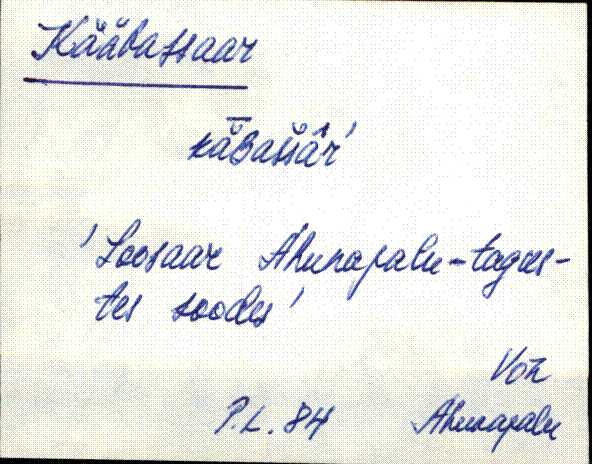 Kääbassaar
kä̆ʙassâr'
'Soosaar Ahunapalu-tagus-
tes soodes'
Võn
P.L. 84 Ahunapalu